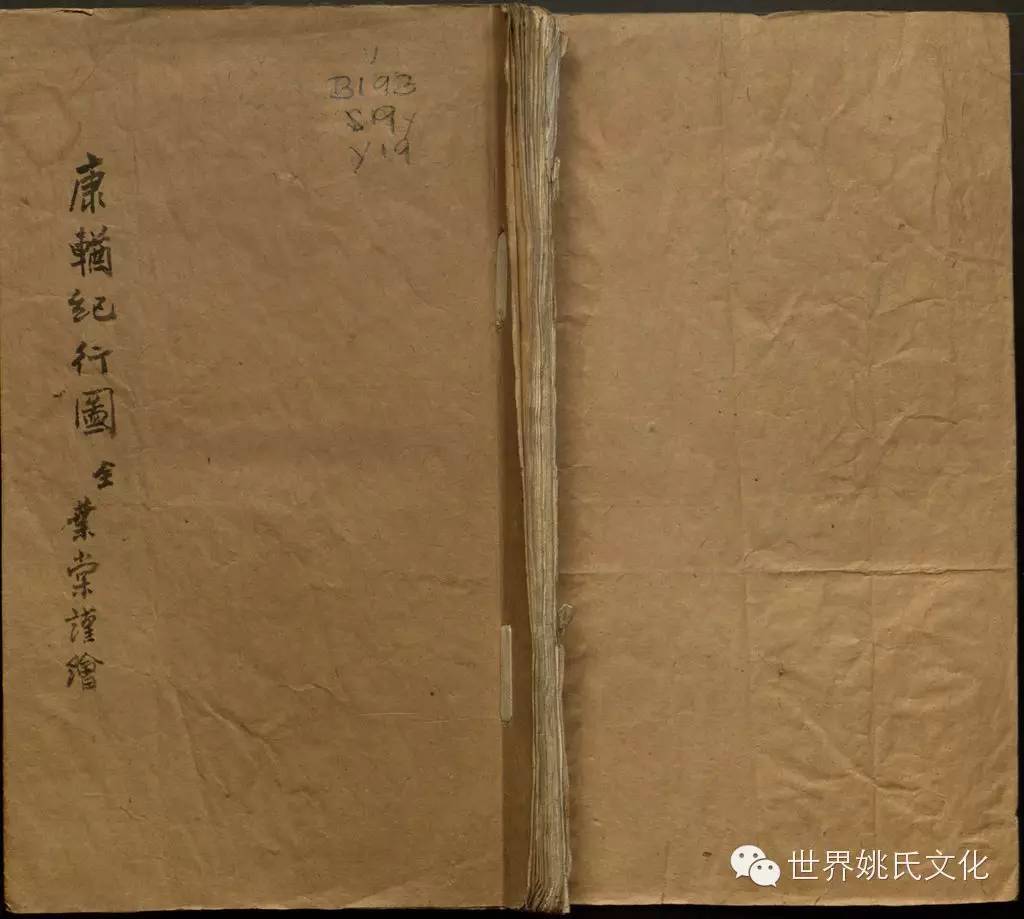 康輶紀行圖 全 葉棠謹繪
B193
S19y
y19
世界姚氏文化